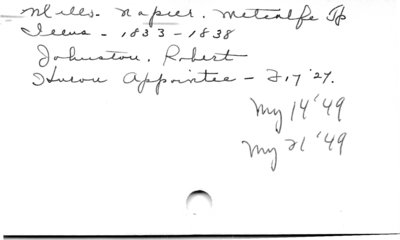 Mills. Napier. Metcalfe Tp
Items - 1833 - 1838
Johnston. Robert
Huron Appointee - F.17 '27.
My 14 '49
My 21 '49